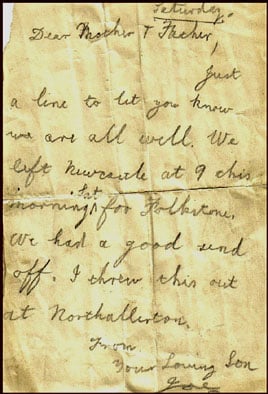 Saturday.
Dear Mother & Father,
Just
a line to let you know
we are all well. We
left Newcastle at 9 this
morning Sat for Folkstone.
We had a good send
off. I threw this out
at Northallerton.
From
Your Loving Son
Joe